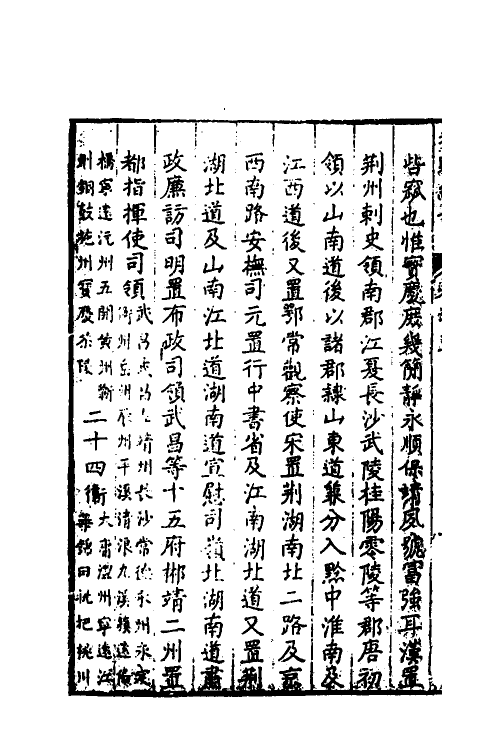 皆窳也惟寶慶庶幾簡靜永順保靖夙號富強耳漢置
荆州刺史領南郡江夏長沙武陵桂陽零陵等郡唐初
領以山南道後以諸郡隸山東道兼分入黔中淮南及
江西道後又置鄂常觀察使宋置荆湖南北二路及京
西南路安撫司元置行中書省及江南湖北道又置荆
湖北道及山南江北道湖南道宣慰司嶺北湖南道肅
政廉訪司明置布政司領武昌等十五府郴靖二州置
都指揮使司領武昌武昌左靖州長沙常德永州永定
衡州岳州辰州平溪清浪九溪鎮遠偏
橋寧遠沅州五開黄州蘄
州銅鼓施州寶慶茶陵二十四衛大庸澧州寧遠江
華錦田枇杷桃川